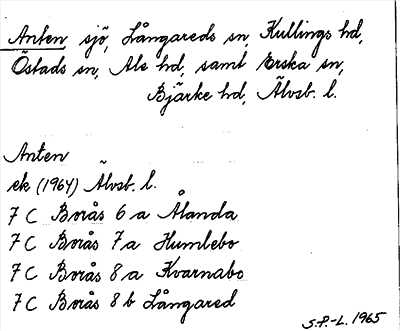 Anten sjö, Långareds sn, Kullings hd,
Östads sn, Ale hd, samt Erska sn,
Bjärke hd, Älvsb. l.
Anten
ek (1964) Älvsb. l.
7 C Borås 6 a Ålanda
7 C Borås 7 a Humlebo
7 C Borås 8 a Kvarnabo
7 C Borås 8 b Långared
S.P.-L. 1965